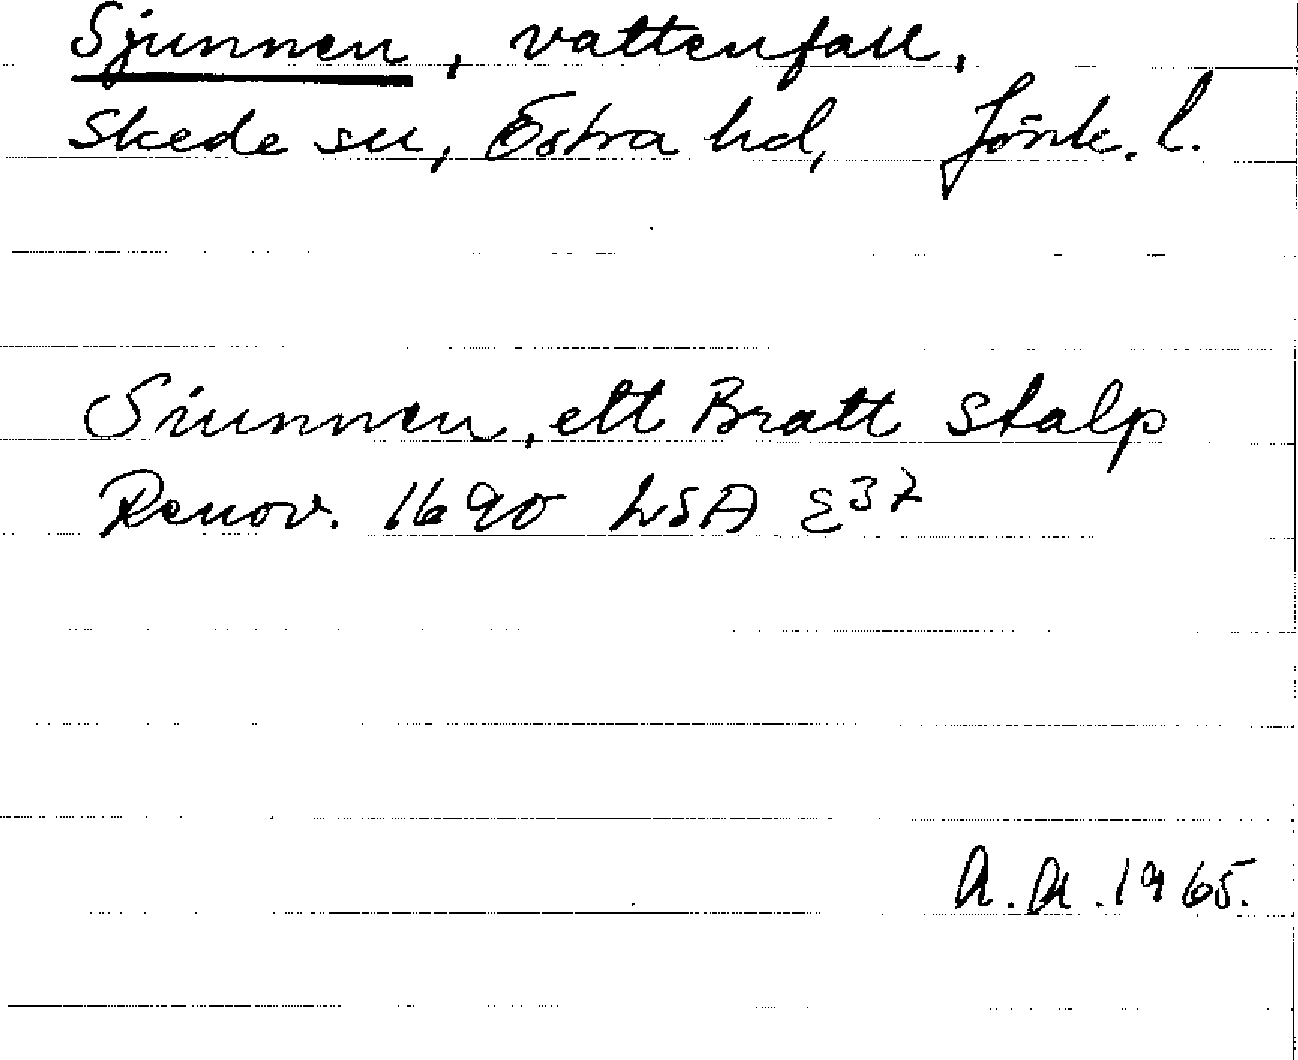 Sjunnen, vattenfall,
Skede sn, Östra hd, Jönk. l.
Siunnen, ett Bratt Stalp
Renov. 1690 LSA E37
A.A. 1965.